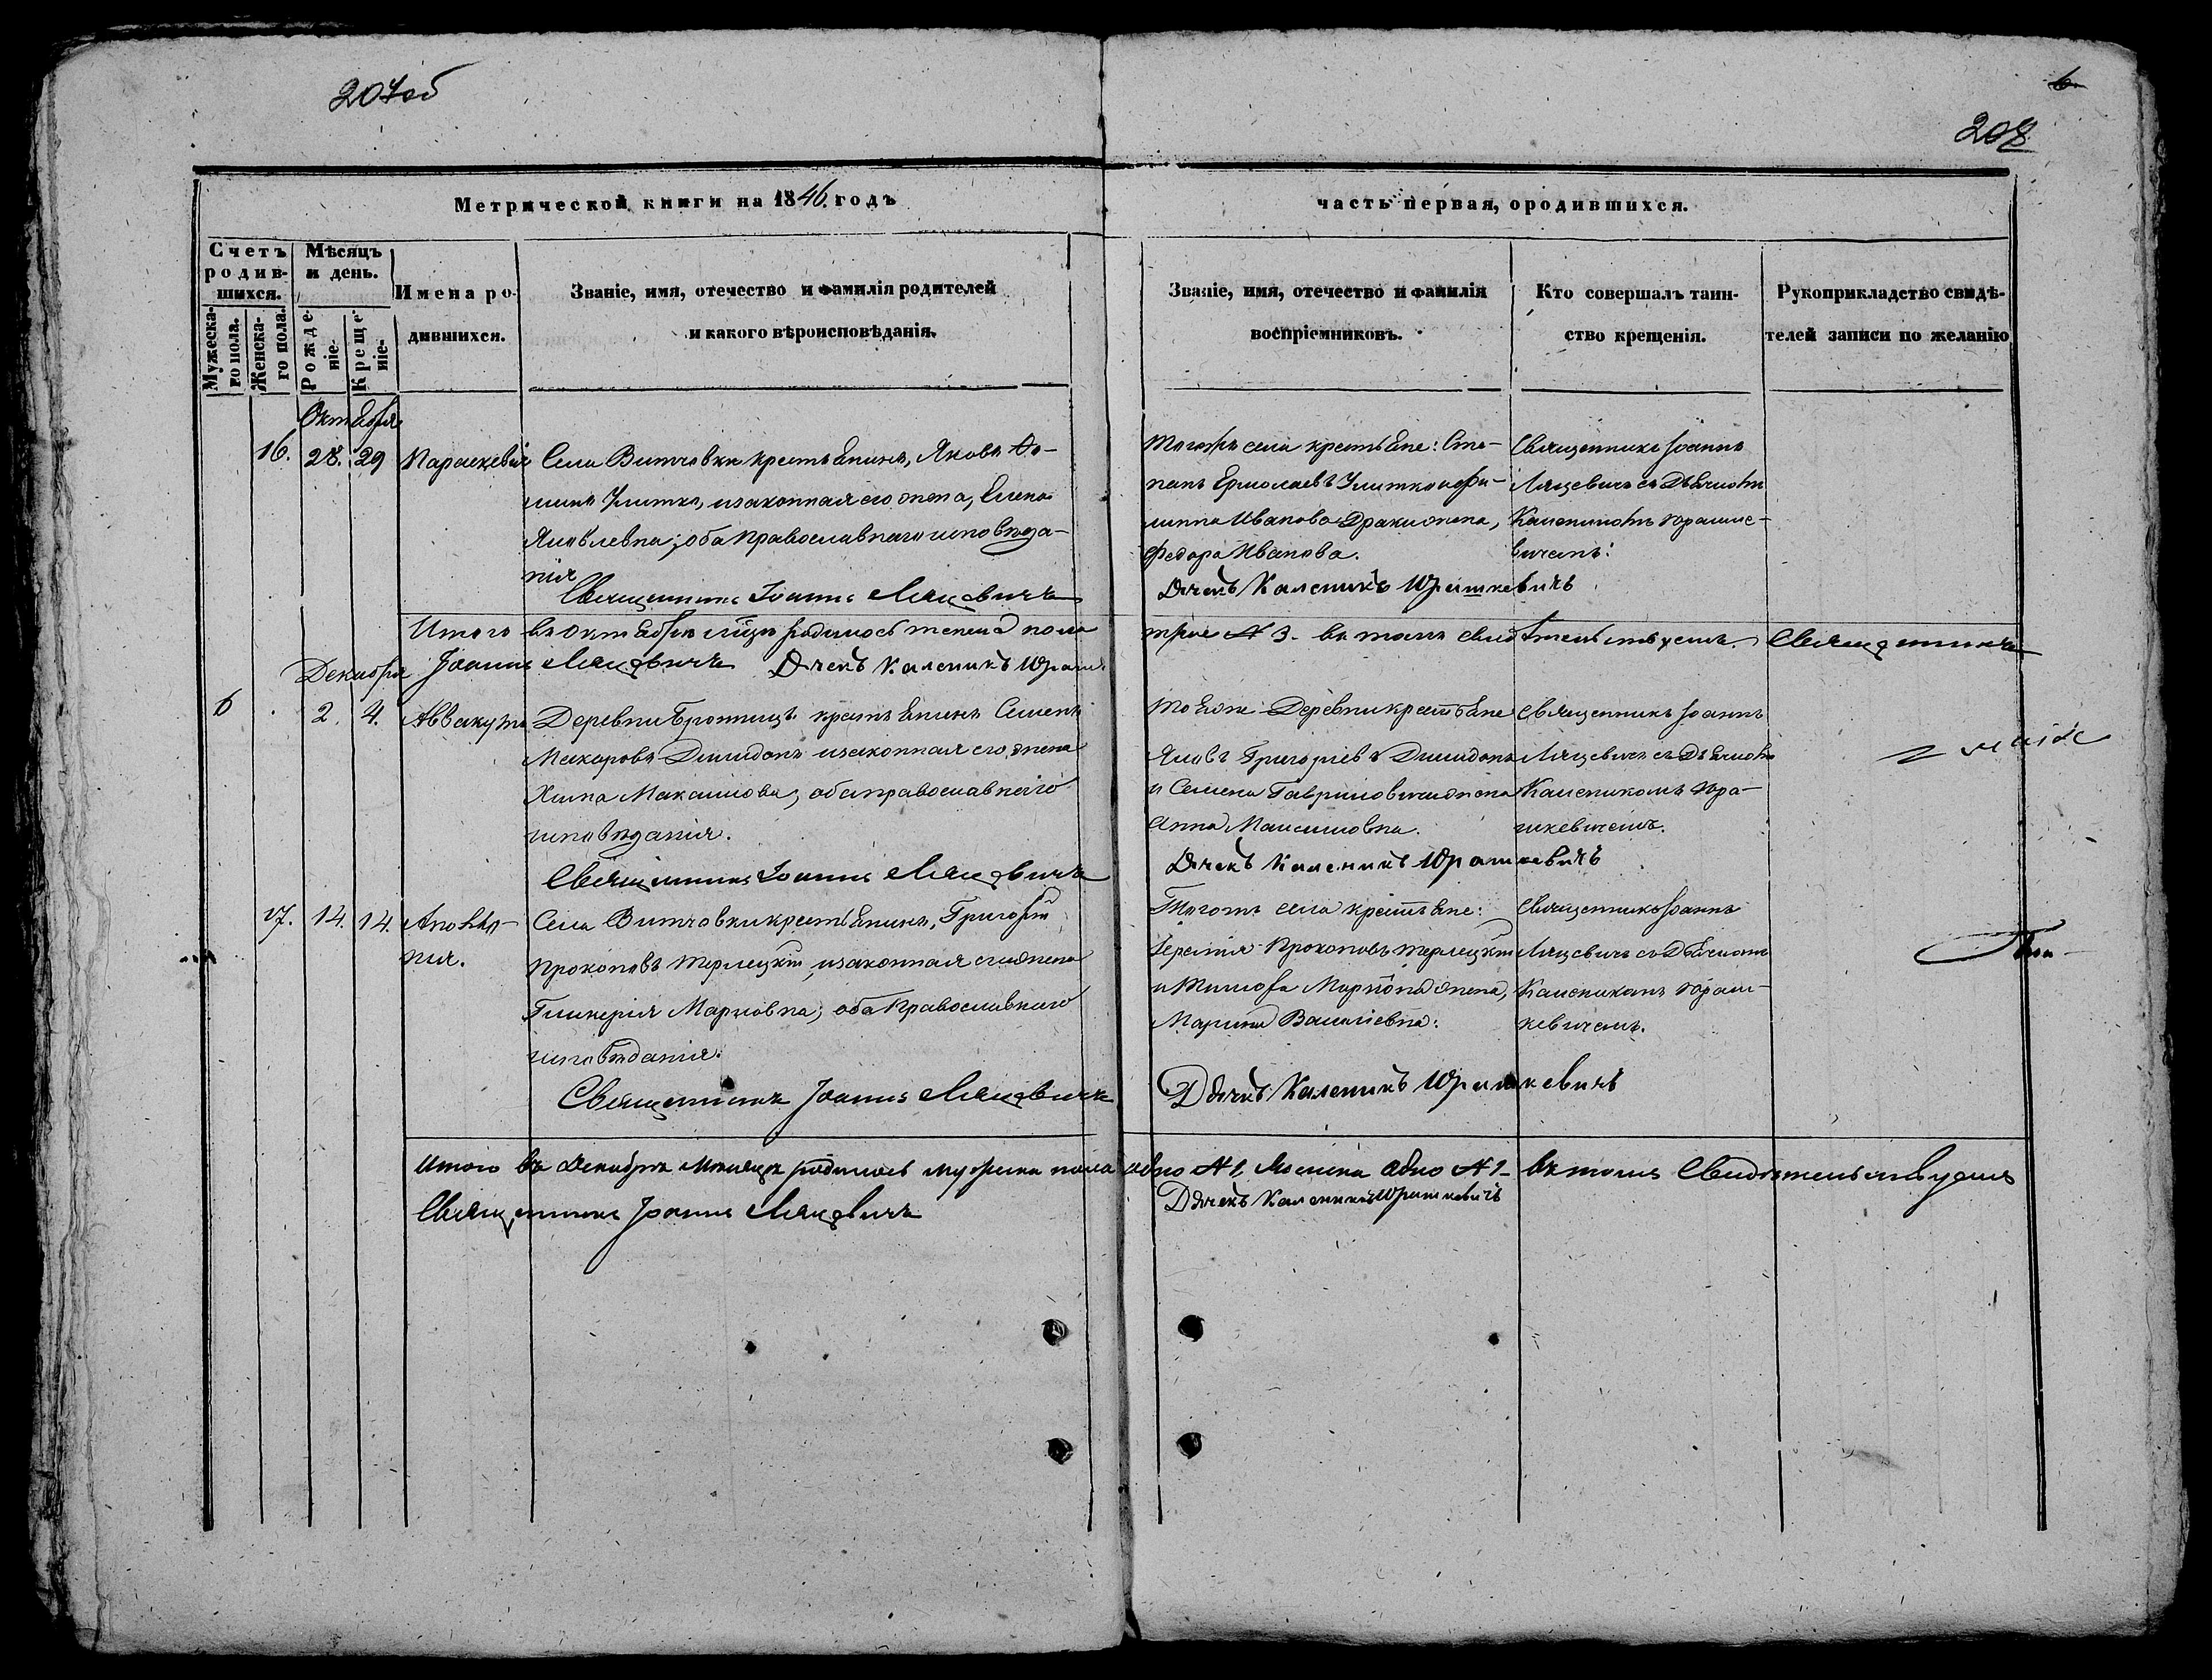 207об
6
208
Метрической книги на 1846. годъ
часть первая, ородившихся.
Счетъ родив-шихся.
Мѣсяцъ и день.
Мужеска-го пола.
Женска-го пола.
Рожде-ніе.
Креще-ніе.
Имена ро-
дившихся.
Званіе, имя, отечество и фамилія родителей
и какого вѣроисповѣданія.
Званіе, имя, отечество и фамилія
воспріемниковъ.
Кто совершалъ таин-
ство крещенія.
Рукоприкладство свидѣ-
телей записи по желанію
Октября
16. 28. 29 Параскевія
Села Витчовки крестьянинъ, Яковъ Ѳо-
минъ Улитко, изаконная его жена, Елена
Яковлевна; оба Православнаго исповѣда-
нія
Священникъ Іоаннъ Ляцевичъ
Тогожъ села крестьяне: Сте-
панъ Ермолаевъ Улитко и
Иванова жена,
Федора Иванова.
Дячекъ Каленикъ Юрашкевичъ
Священникъ Іоаннъ
Ляцевичъ съ Дьячкомъ
Каленикомъ Юрашке-
вичемъ.
Итого въ Октябрѣ мѣсяцѣ родилось женска пола
трое № 3. въ томъ свидѣтельствуемъ. Священникъ
Іоаннъ Ляцевичъ Дячекъ Каленикъ Юраш.
Декабря
6 2. 4. Аввакумъ
Деревни Бронницъ крестьянинъ Семенъ
Макаровъ Демидокъ изаконная его жена
Химка Максимова; оба православнаго
исповѣданія.
Священникъ Іоаннъ Ляцевичъ
Тоеже Деревни крестьяне
Яковъ Григоріевъ Демидокъ
и Семена Гаврилова жена
Анна Максимовна.
Дячекъ Каленикъ Юрашкевичъ
Священникъ Іоаннъ
Ляцевичъ съ Дьячкомъ
Калеником Юра-
шкевичемъ.
17. 14. 14. Аполло-
нія.
Села Витчовки крестьянинъ, Григорій
Прокоповъ Терлецкій, изаконная его жена
Гликерія Марковна; оба Православнаго
исповѣданія.
Священникъ Іоаннъ Ляцевичъ
Тогожъ села крестьяне:
Іеремія Прокоповъ Терлецкій
и жена,
Марина Василіевна.
Ддячкъ Каленикъ Юрашкевичъ
Священникъ Іоаннъ
Ляцевичъ съ Дьячкомъ
Калеником Юраш-
кевичемъ.
Итого въ Декабрѣ Мѣсяцѣ родилось мужеска пола одно № 1. Женска одно № 1. въ томъ Свидѣтельствуемъ
Священникъ Іоаннъ Ляцевичъ
Ддячекъ Каленикъ Юрашкевичъ